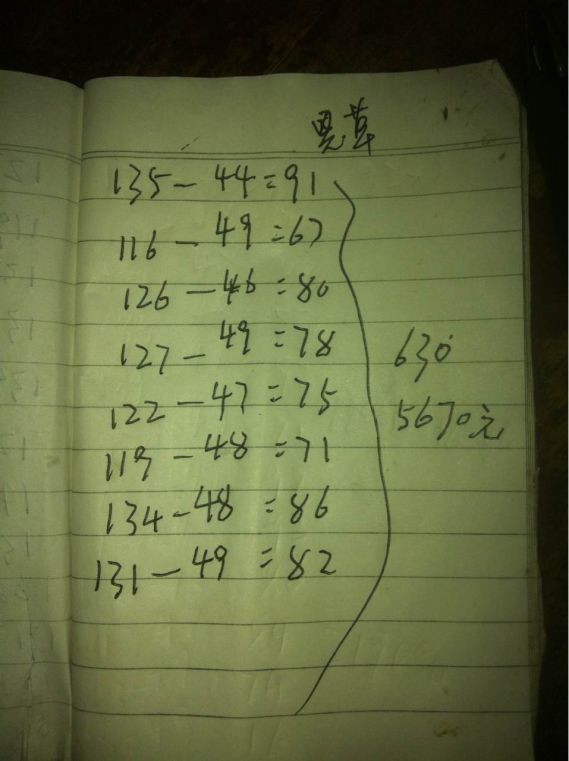 135-44=91
116-49=67
126-46=80
127-49=78
122-47=75
119-48=71
134-48=86
131-49=82
630
5670元